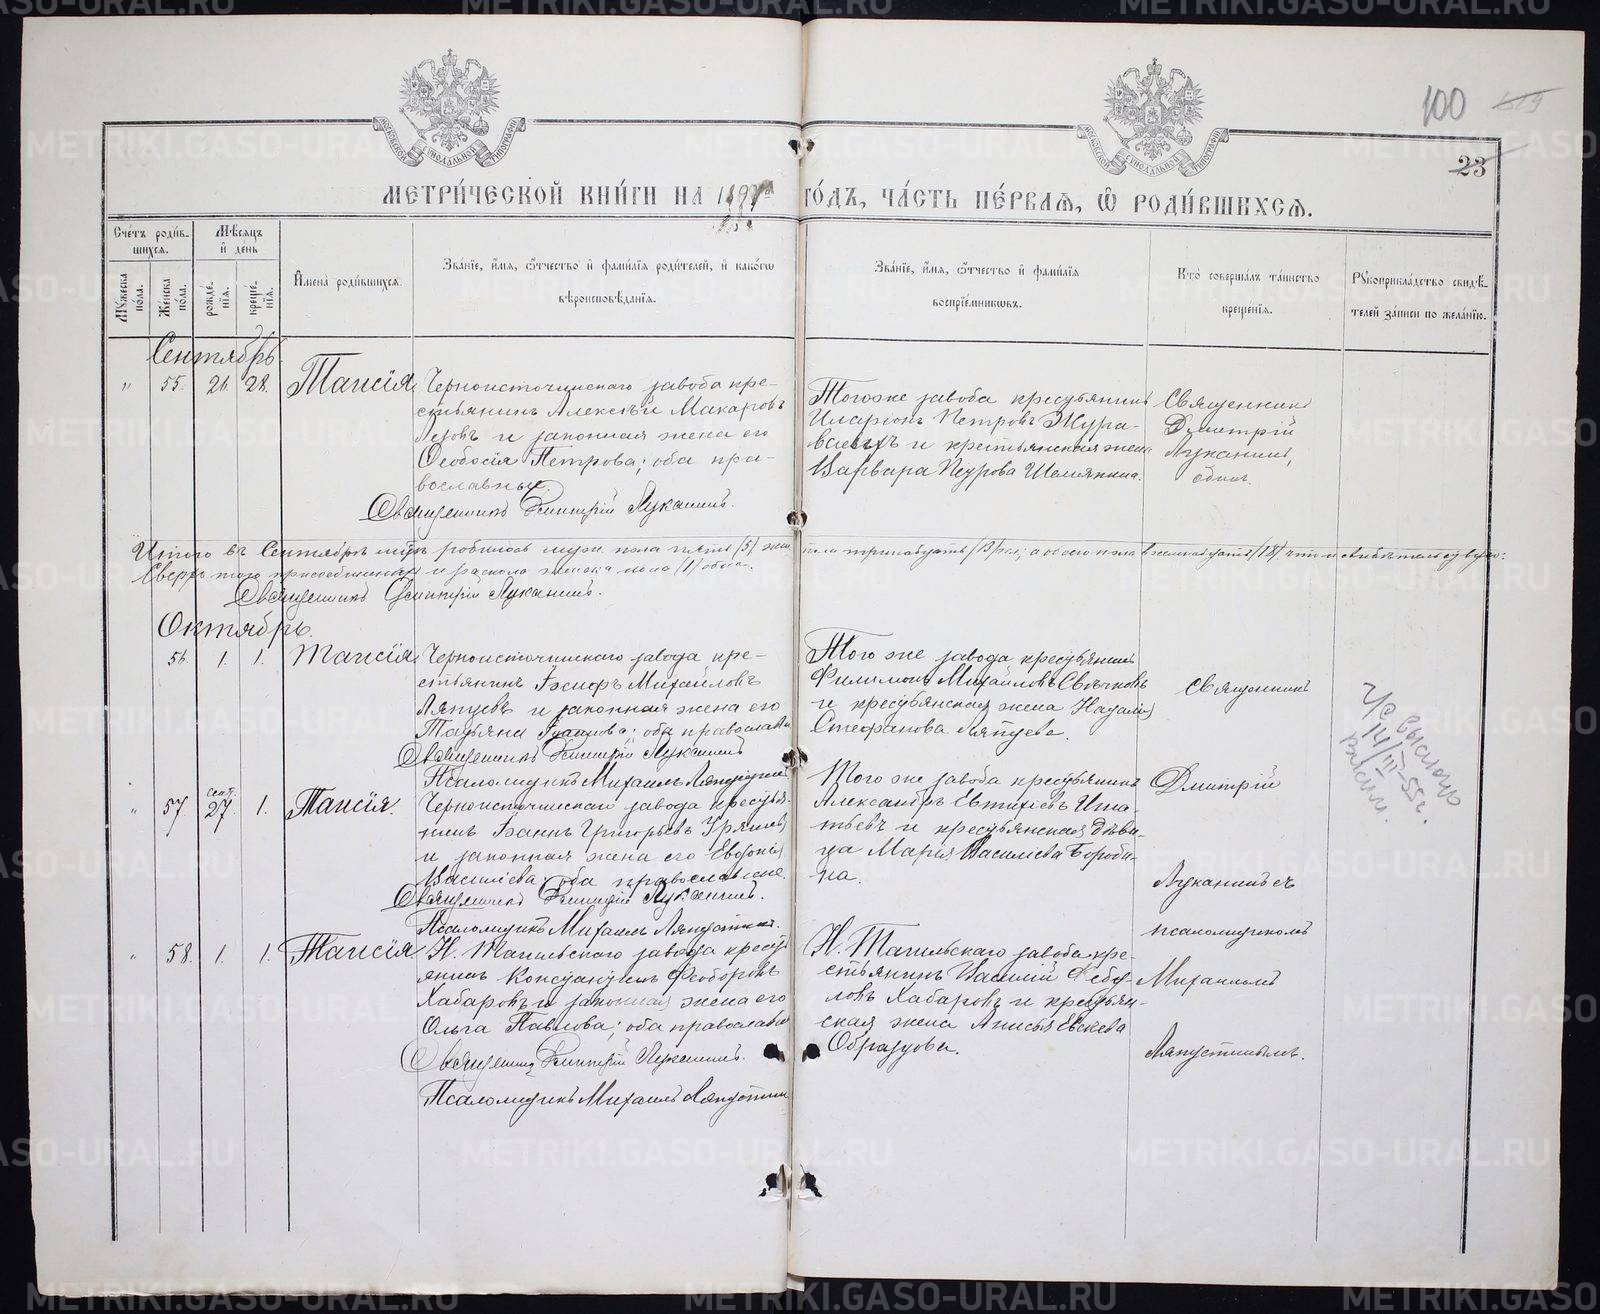 100
23
МОСКОВСКОЙ СѴНОДАЛЬНОЙ ТИПОГРАФІИ
МОСКОВСКОЙ СѴНОДАЛЬНОЙ ТИПОГРАФІИ
МЕТРИ́ЧЕСКОЙ КНИ́ГИ НА 189 ГО́ДЪ, ЧА́СТЬ ПЕ́РВАѦ, Ѡ҆ РОДИ́ВШИХСѦ.
Сче́тъ роди́в-
шихсѧ.
Мѣ́сѧцъ
и҆ де́нь
Мꙋ́жеска
по́ла.
Же́нска
по́ла.
рожде́-
нїѧ.
креще́-
нїѧ.
И҆мена̀ роди́вшихсѧ.
Зва́нїе, и҆́мѧ, ѻ҆́тчество и҆ фами́лїѧ роди́телей, и҆ како́гѡ
вѣроисповѣ́данїѧ.
Зва́нїе, и҆́мѧ, ѻ҆́тчество и҆ фами́лїѧ
воспрїе́мникѡвъ.
Кто̀ соверша́лъ та́инство
креще́нїѧ.
Рꙋкоприкла́дство свидѣ́-
телей за́писи по жела́нїю.
Сентябрь.
" 55. 26. 28. Таисія
Черноисточинскаго завода кре-
стьянинъ Алексѣй Макаровъ
и законная жена его
Ѳеодосія Петрова; оба пра-
вославные.
Священникъ Димитрій Луканинъ.
Тогоже завода крестьянинъ
Иларіонъ Петровъ Жура-
влевъ и крестьянская жена
Варвара Шемякина.
Священникъ
Димитрій
Луканинъ,
одинъ.
Итого въ Сентябрѣ мцѣ родилось муж. пола пять (5) жен. пола тринадцать (13) а обоего пола восемнадцать (18)
Сверхъ того присоединена из раскола женска пола (1) одна.
Священникъ Димитрій Луканинъ.
Октябрь.
56. 1. 1. Таисія
Черноисточинскаго завода, кре-
стьянинъ Михайловъ
Ляпцевъ и законная жена его
Татьяна оба православн
Священникъ Димитрій Луканинъ
Псаломщикъ Михаилъ Ляпустинъ
Того же завода крестьянинъ
Филимонъ Михайловъ Свѣчковъ
и крестьянская жена Наталія
Стефанова Ляпцева.
Священникъ
" 57. сент. 27 1. Таисія.
Черноисточинскаго завода крестья-
нинъ Іоаннъ Григорьевъ
и законная жена его Евдокія
Василіева; оба православные.
Священникъ Димитрій Луканинъ.
Псаломщикъ Михаилъ Ляпустинъ.
Того же завода крестьянинъ
Александръ Евтихіевъ Игна-
тьевъ и крестьянская дѣви-
ца Марія Василіева Бороди-
на.
Дмитрій
Луканинъ съ
псаломщикомъ
" 58. 1. 1. Таисія
Н. Тагильскаго завода кресть
янинъ Константинъ Ѳеодоровъ
Хабаровъ и законная жена его
Ольга Павлова; оба православные
Священникъ Димитрій Луканинъ.
Псаломщикъ Михаилъ Ляпустинъ
Н. Тагильскаго завода кре-
стьянинъ Василій Ѳеду-
ловъ Хабаровъ и крестьян-
ская жена Анисья
Образцова.
Михаиломъ
Ляпустинымъ.